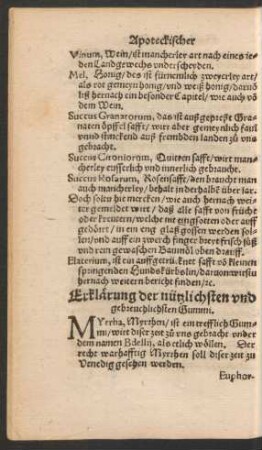 Apoteckischer
Vinum, Wein/ist mancherley art nach eines ie-
den Landgewechs vnderscheyden.
Mel, Honig/des ist fürnemlich zweyerley art/
als rot gemeyn honig/vnd weiß honig/daruõ
liß hernach ein besonder Capitel/wie auch võ
dem Wein.
Succus Granatorum, das ist außgepreßt Gra-
naten öpffel safft/wirt aber gemeynlich faul
vnnd stinckend auß frembden landen zu vns
gebracht.
Succus Citoniorum, Quitten safft/wirt man-
cherley eusserlich vnd innerlich gebraucht.
Succus Rosarum, Rosensafft/den braucht man
auch mancherley/behalt in derhalbē über jar.
Doch soltu hit mercken/wie auch hernach wei-
ter gemeldet wirt/daß alle safft von frücht
oder kreutern/welche nit eingsotten oder auff
gedörrt/in ein eng glaß gossen werden sol-
len/vnd auff ein zwech finger breyt frisch süß
vnd rein gewaschen Baumöl oben darauff.
Elaterium, ist ein auffgetrücknet safft võ kleinen
springenden Hundskürbslin/daruon wirstu
hernach weitern bericht finden/etc.
Erklärung der nützlichsten vnd
gebreuchlichsten Gummi.
MYrrha, Myrrhen/ist ein trefflich Gum-
mi/wirt diser zeit zů vns gebracht vnder
dem namen Bdellij, als etlich wöllen. Der
recht warhafftig Myrrhen soll diser zeit zu
Venedig gesehen werden.
Euphor-